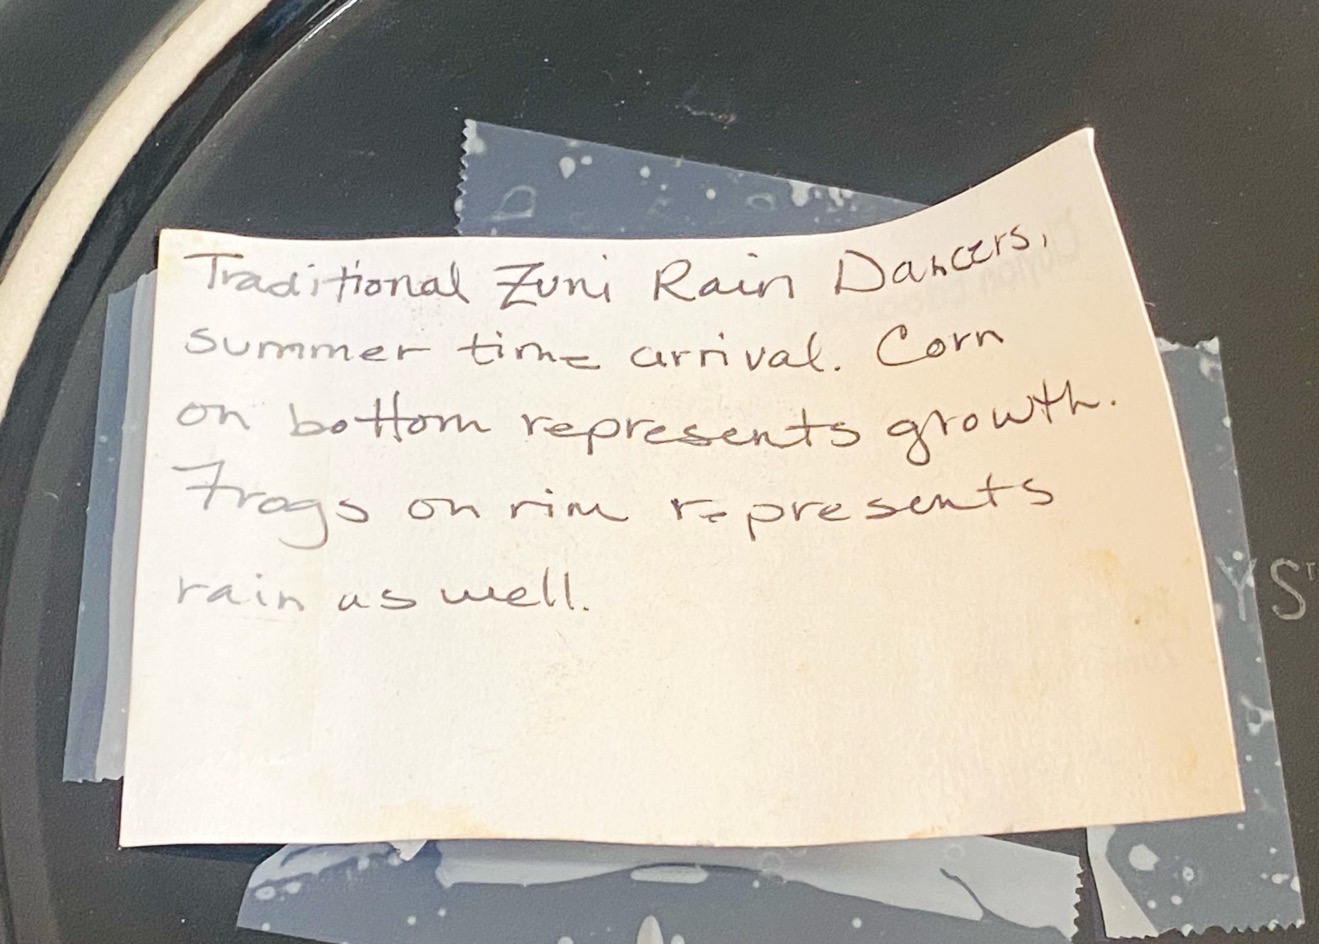 Traditional Zuni Rain Dancers,
summer time arrival. Corn
on bottom represents growth.
Frogs on rim represents
rain as well.
YS